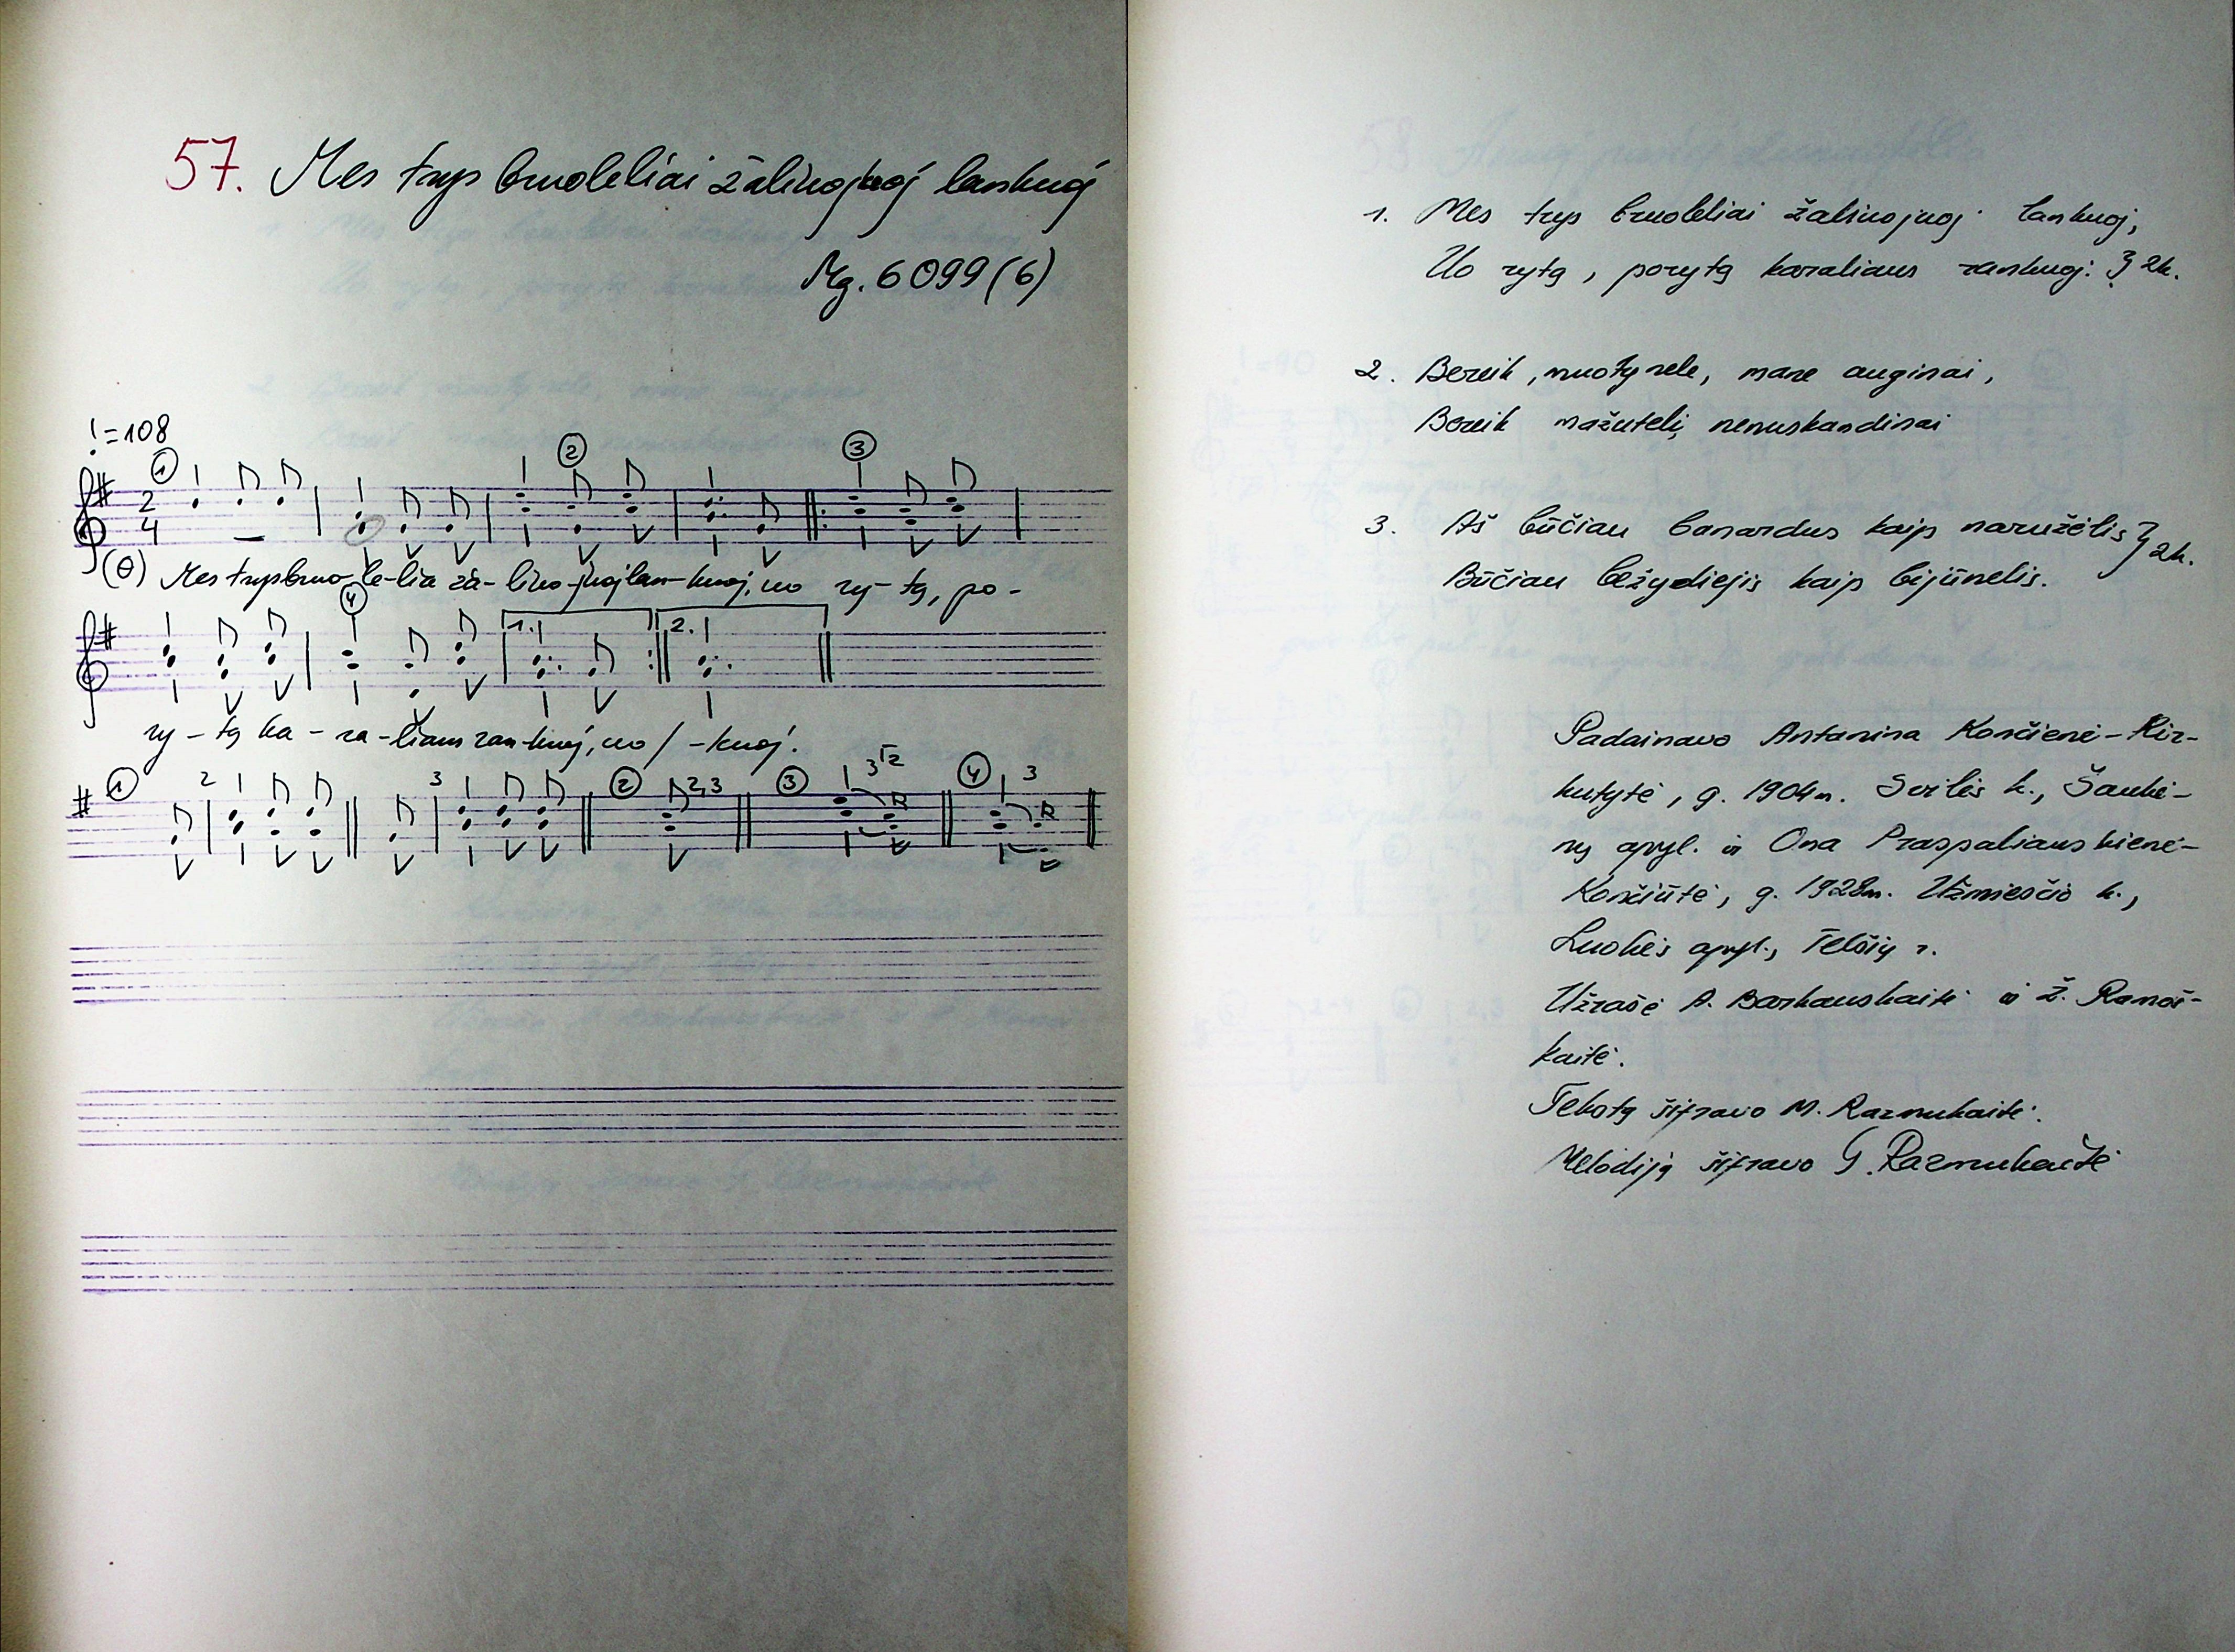 57. Mes trys bruoleliai žalinojuoj lankuoj
Mg. 6099(6)
=108
1 2 3
2
4
(θ) Mes trys bruo-le-lia ža-lino-juoj lan-kuoj, uo ry-tą, po-
4 1. 2.
ry-tą ka-ra-liaus ran-kuoj, uo / -kuoj.
1 2 3 2 2,3 3 4 3
1. Mes trys bruoleliai žalinojuoj lankuoj,
Uo rytą, porytą karaliaus rankuoj. } 2k.
2. Bereik, muotynele, mane auginai,
Bereik mažutelį nenuskandinai
3. Aš būčiau banardus kaip naružėlis } 2k.
Būčiau bežydiejis kaip bijūnelis.
Padainavo Antanina Končienė-Kir-
kutytė, g. 1904m. Svilės k., Šaukė-
nų apyl. ir Ona Praspaliauskienė-
Končiūtė, g. 1928m. Užmiesčio k.,
Luokės apyl., Telšių r.
Užrašė A. Barkauskaitė ir Ž. Ramoš-
kaitė.
Tekstą šifravo M. Razmukaitė.
Melodiją šifravo G. Razmukaitė